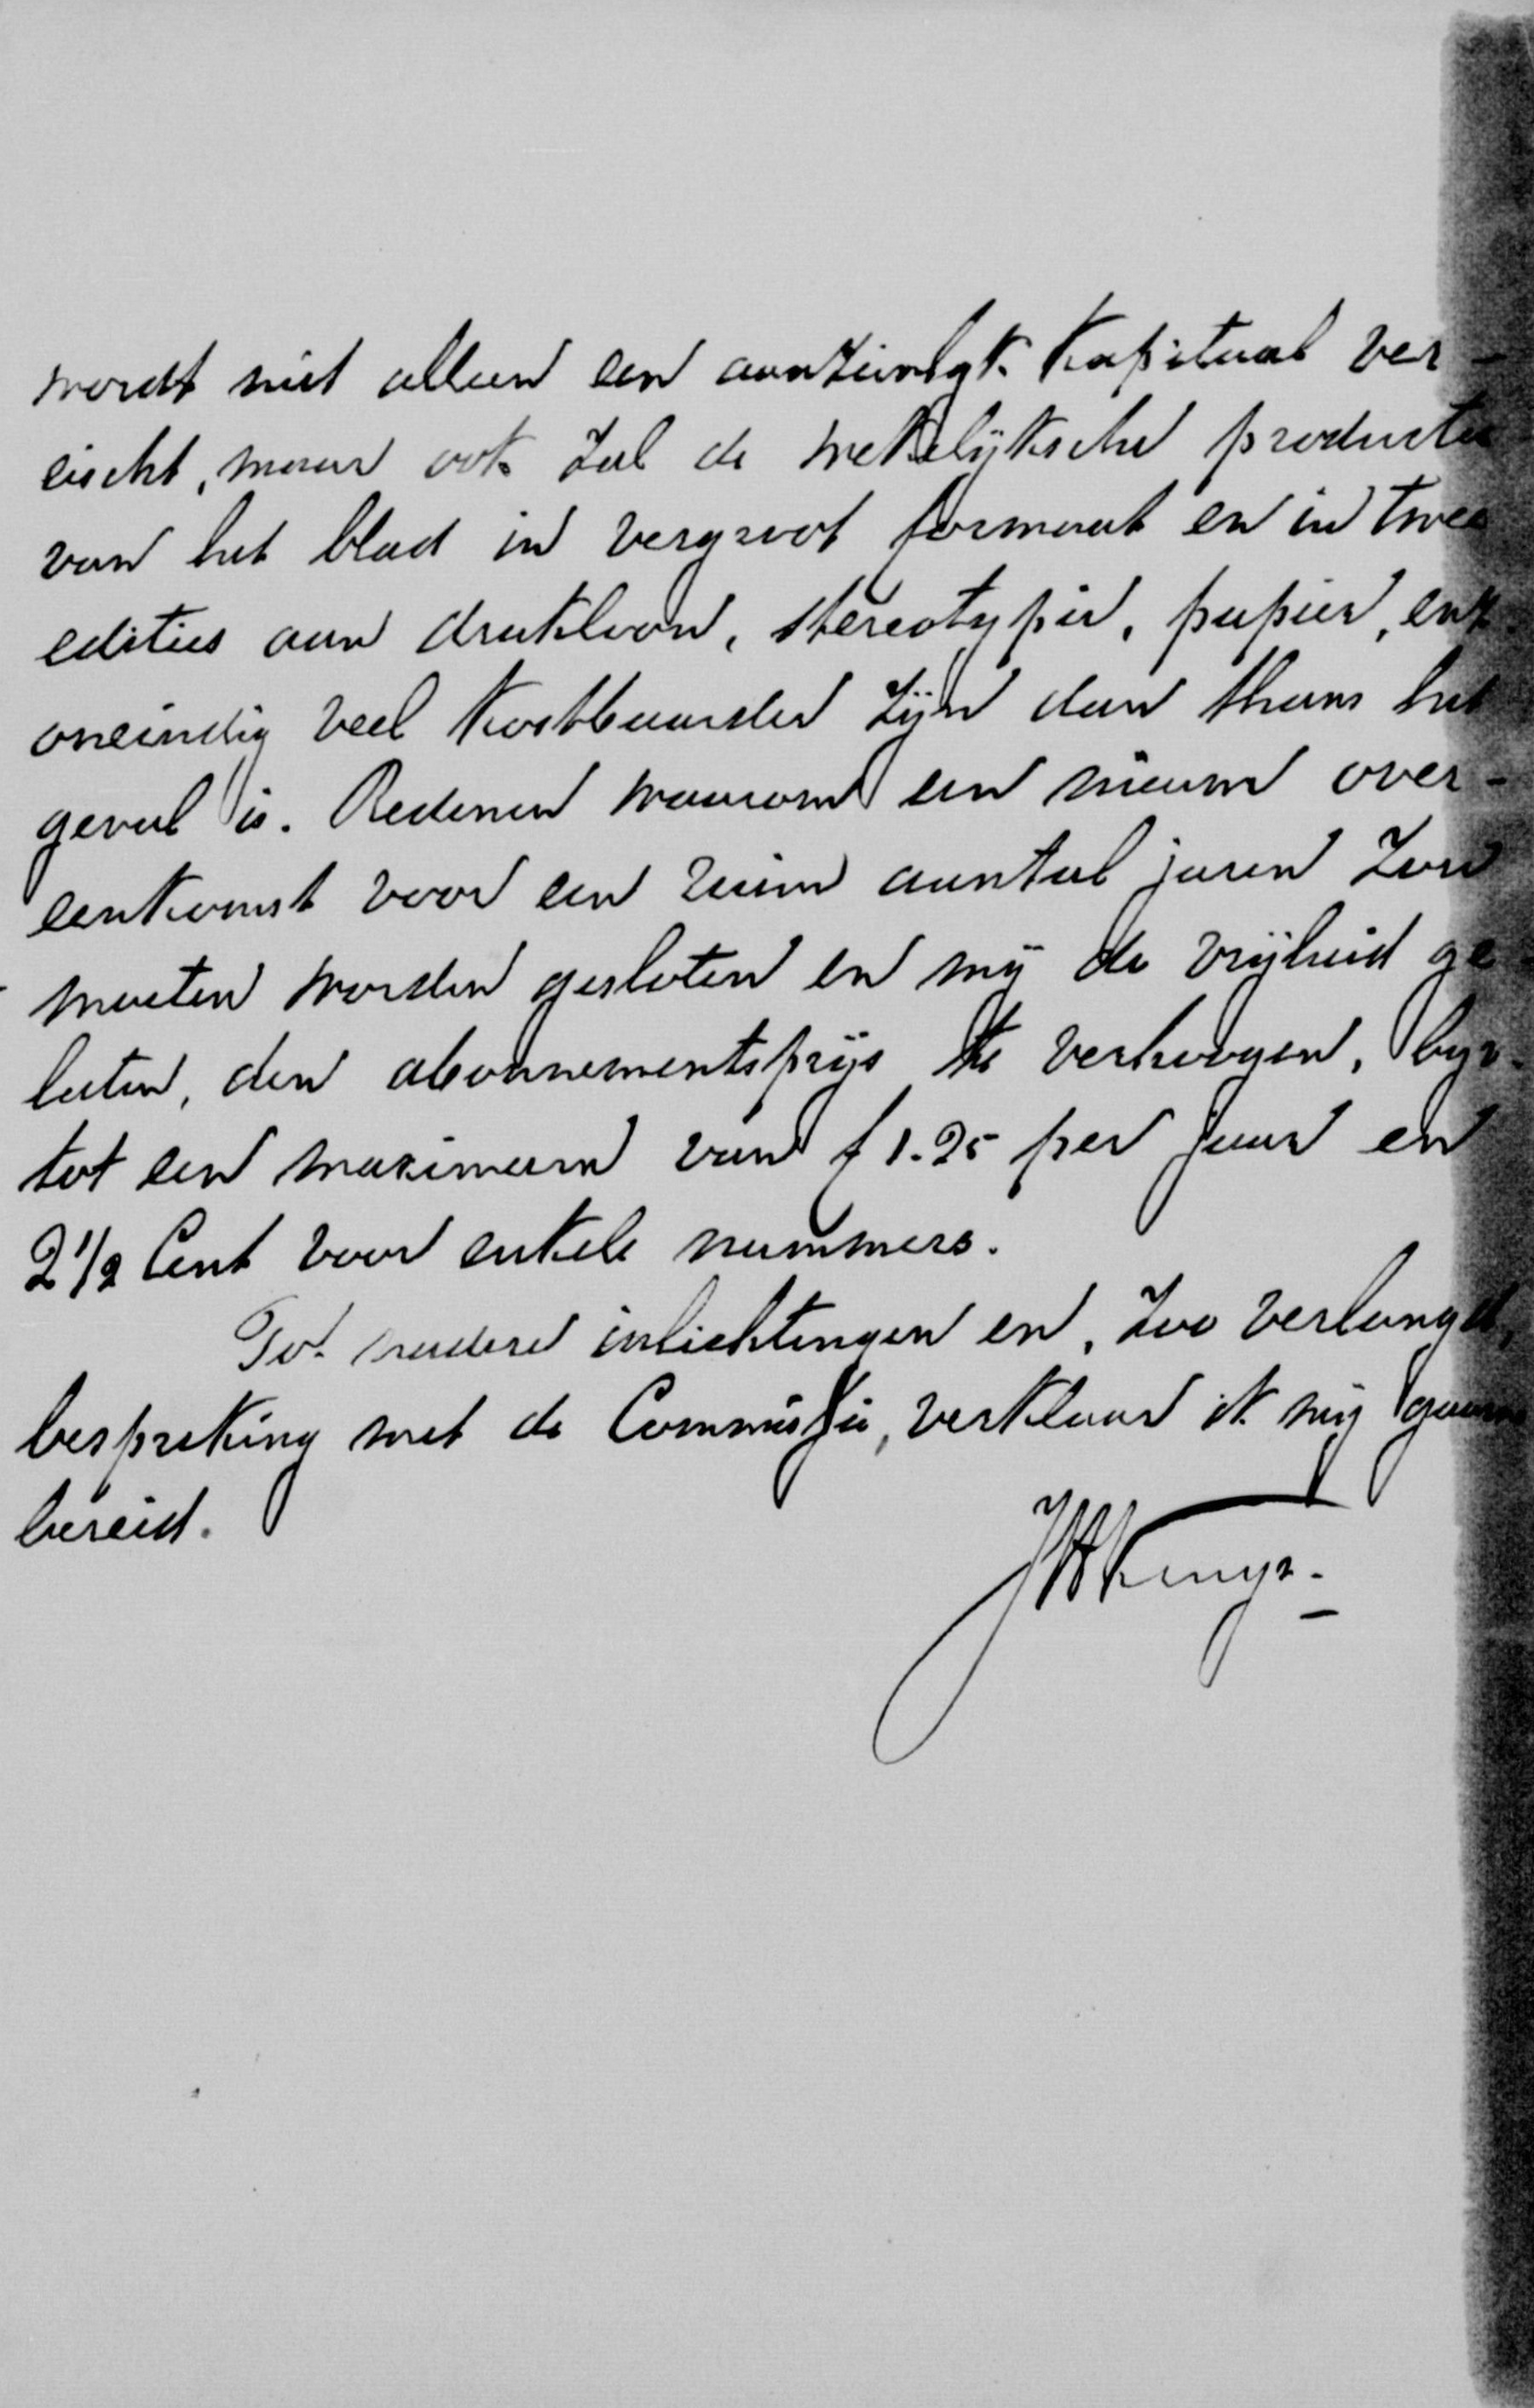 wordt niet alleen een aanzienlyk kapitaal ver-
eischt, maar ook zal de wekelijksche productie
van het blad in vergroot formaat en in twee
edities aan drukloon, stereotypie, papier, enz.
oneindig veel kostbaarder zijn dan thans het
geval is. Redenen waarom een nieuwe over-
eenkomst voor een ruim aantal jaren zou
moeten worden gesloten en mij de vrijheid ge-
laten, den abonnementsprijs te verhoogen, byv.
tot een maximum van f 1.25 per jaar en
2 1/2 Cent voor enkele nummers.
Tot nadere inlichtingen en, zoo verlangd,
bespreking met de Commissie, verklaar ik mij gaarne
bereid.